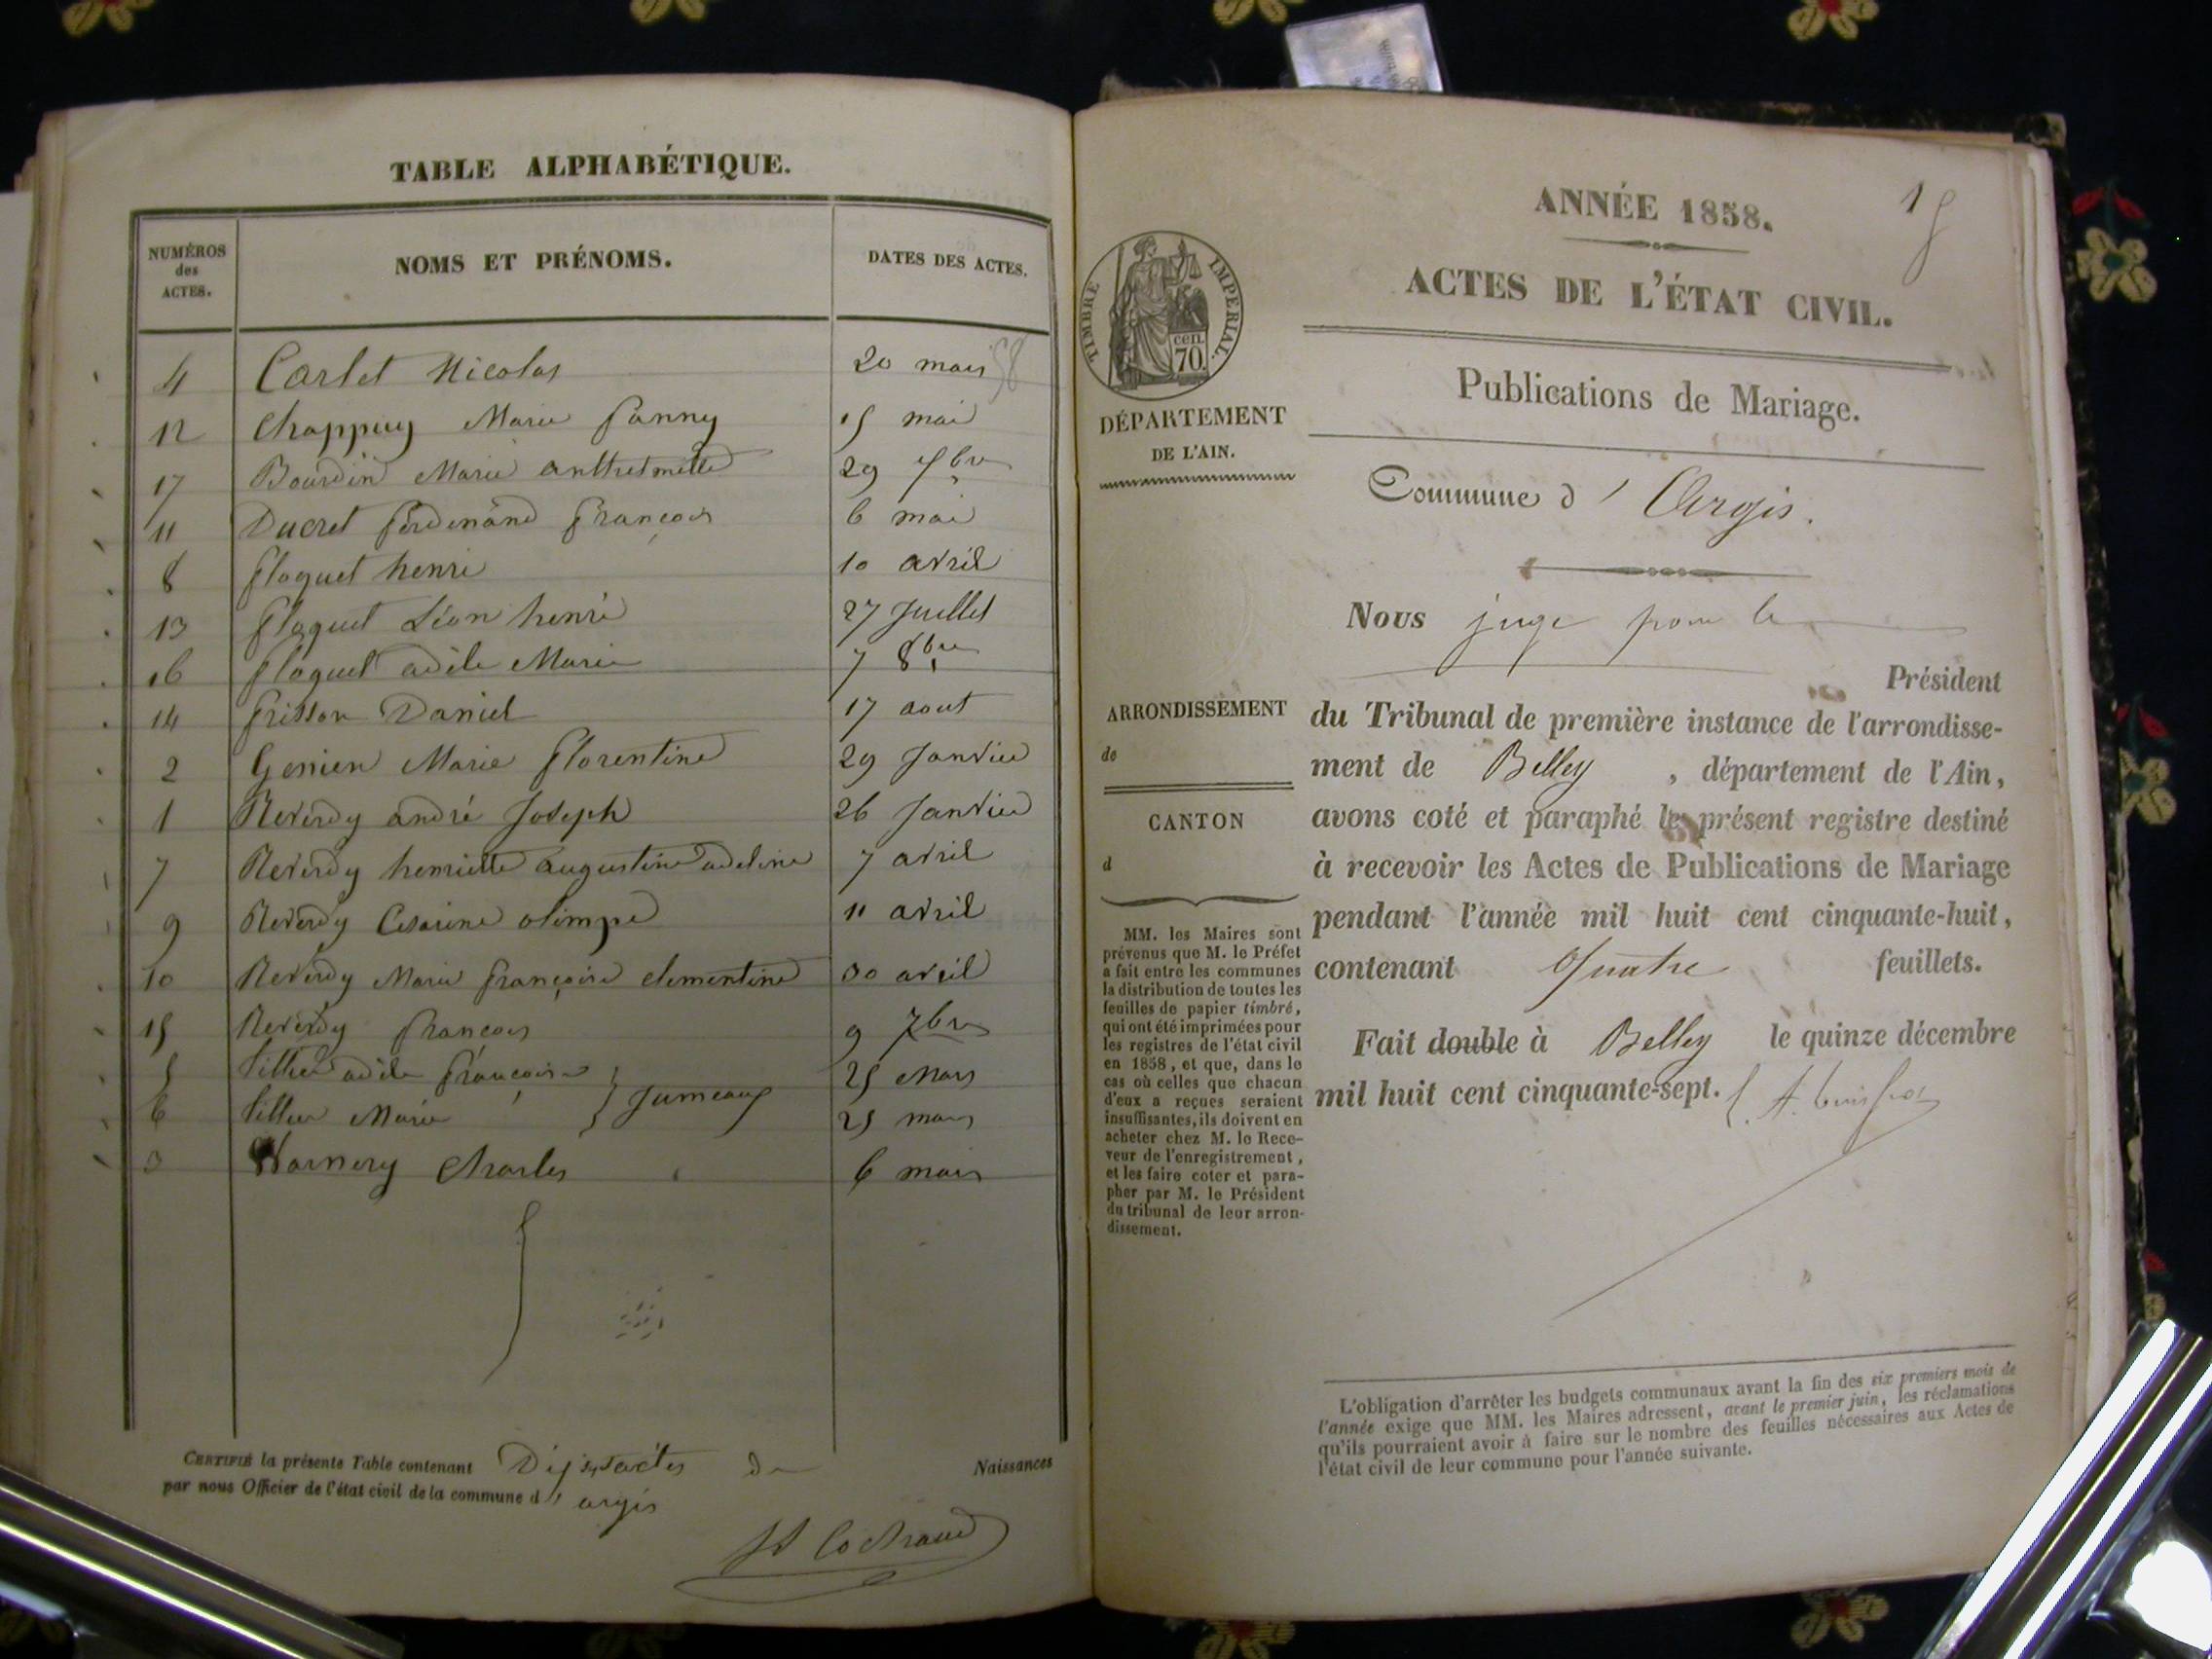 TABLE ALPHABÉTIQUE.
NUMÉROS
des
ACTES.
NOMS ET PRÉNOMS.
DATES DES ACTES.
4 Carlet Nicolas 20 mars 58
12 Chappuy Marie fanny 15 mai
17 Bourdin Marie anthelmette 29 9bre
11 Ducret ferdinand françois 6 mai
8 floquet henri 10 avril
13 floquet Léon henri 27 Juillet
16 floquet adèle Marie 7 8bre
14 frisson Daniel 17 aout
2 Genien Marie florentine 29 Janvier
1 Reverdy andré Joseph 26 Janvier
7 Reverdy henriette augustine adeline 7 avril
9 Reverdy Cesarine olimpe 11 avril
10 Reverdy Marie françoise clementine 30 avril
15 Reverdy francois 9 7bre
5 tillier adèle françoise 25 Mars
Jumeaux
6 tillier Marie 25 mars
3 Warnery Charles 6 mars
CERTIFIÉ la présente Table contenant de Naissances
par nous Officier de l'état civil de la commune d' argis
ANNÉE 1858.
ACTES DE L'ÉTAT CIVIL.
TIMBRE IMPERIAL.
CEN.
70.
Publications de Mariage.
DÉPARTEMENT
DE L'AIN.
Commune d' Argis.
Nous juge pour le
Président
ARRONDISSEMENT
de
du Tribunal de première instance de l'arrondisse-
ment de Belley , département de l'Ain,
CANTON
d
avons coté et paraphé le présent registre destiné
à recevoir les Actes de Publications de Mariage
pendant l'année mil huit cent cinquante-huit,
contenant Quatre feuillets.
Fait double à Belley le quinze décembre
mil huit cent cinquante-sept.
MM. les Maires sont
prévenus que M. le Préfet
a fait entre les communes
la distribution de toutes les
feuilles de papier timbré,
qui ont été imprimées pour
les registres de l'état civil
en 1858, et que, dans le
cas où celles que chacun
d'eux a reçues seraient
insuffisantes, ils doivent en
acheter chez M. le Rece-
veur de l'enregistrement,
et les faire coter et para-
pher par M. le Président
du tribunal de leur arron-
dissement.
L'obligation d'arrêter les budgets communaux avant la fin des six premiers mois de
l'année exige que MM. les Maires adressent, avant le premier juin, les réclamations
qu'ils pourraient avoir à faire sur le nombre des feuilles nécessaires aux Actes de
l'état civil de leur commune pour l'année suivante.